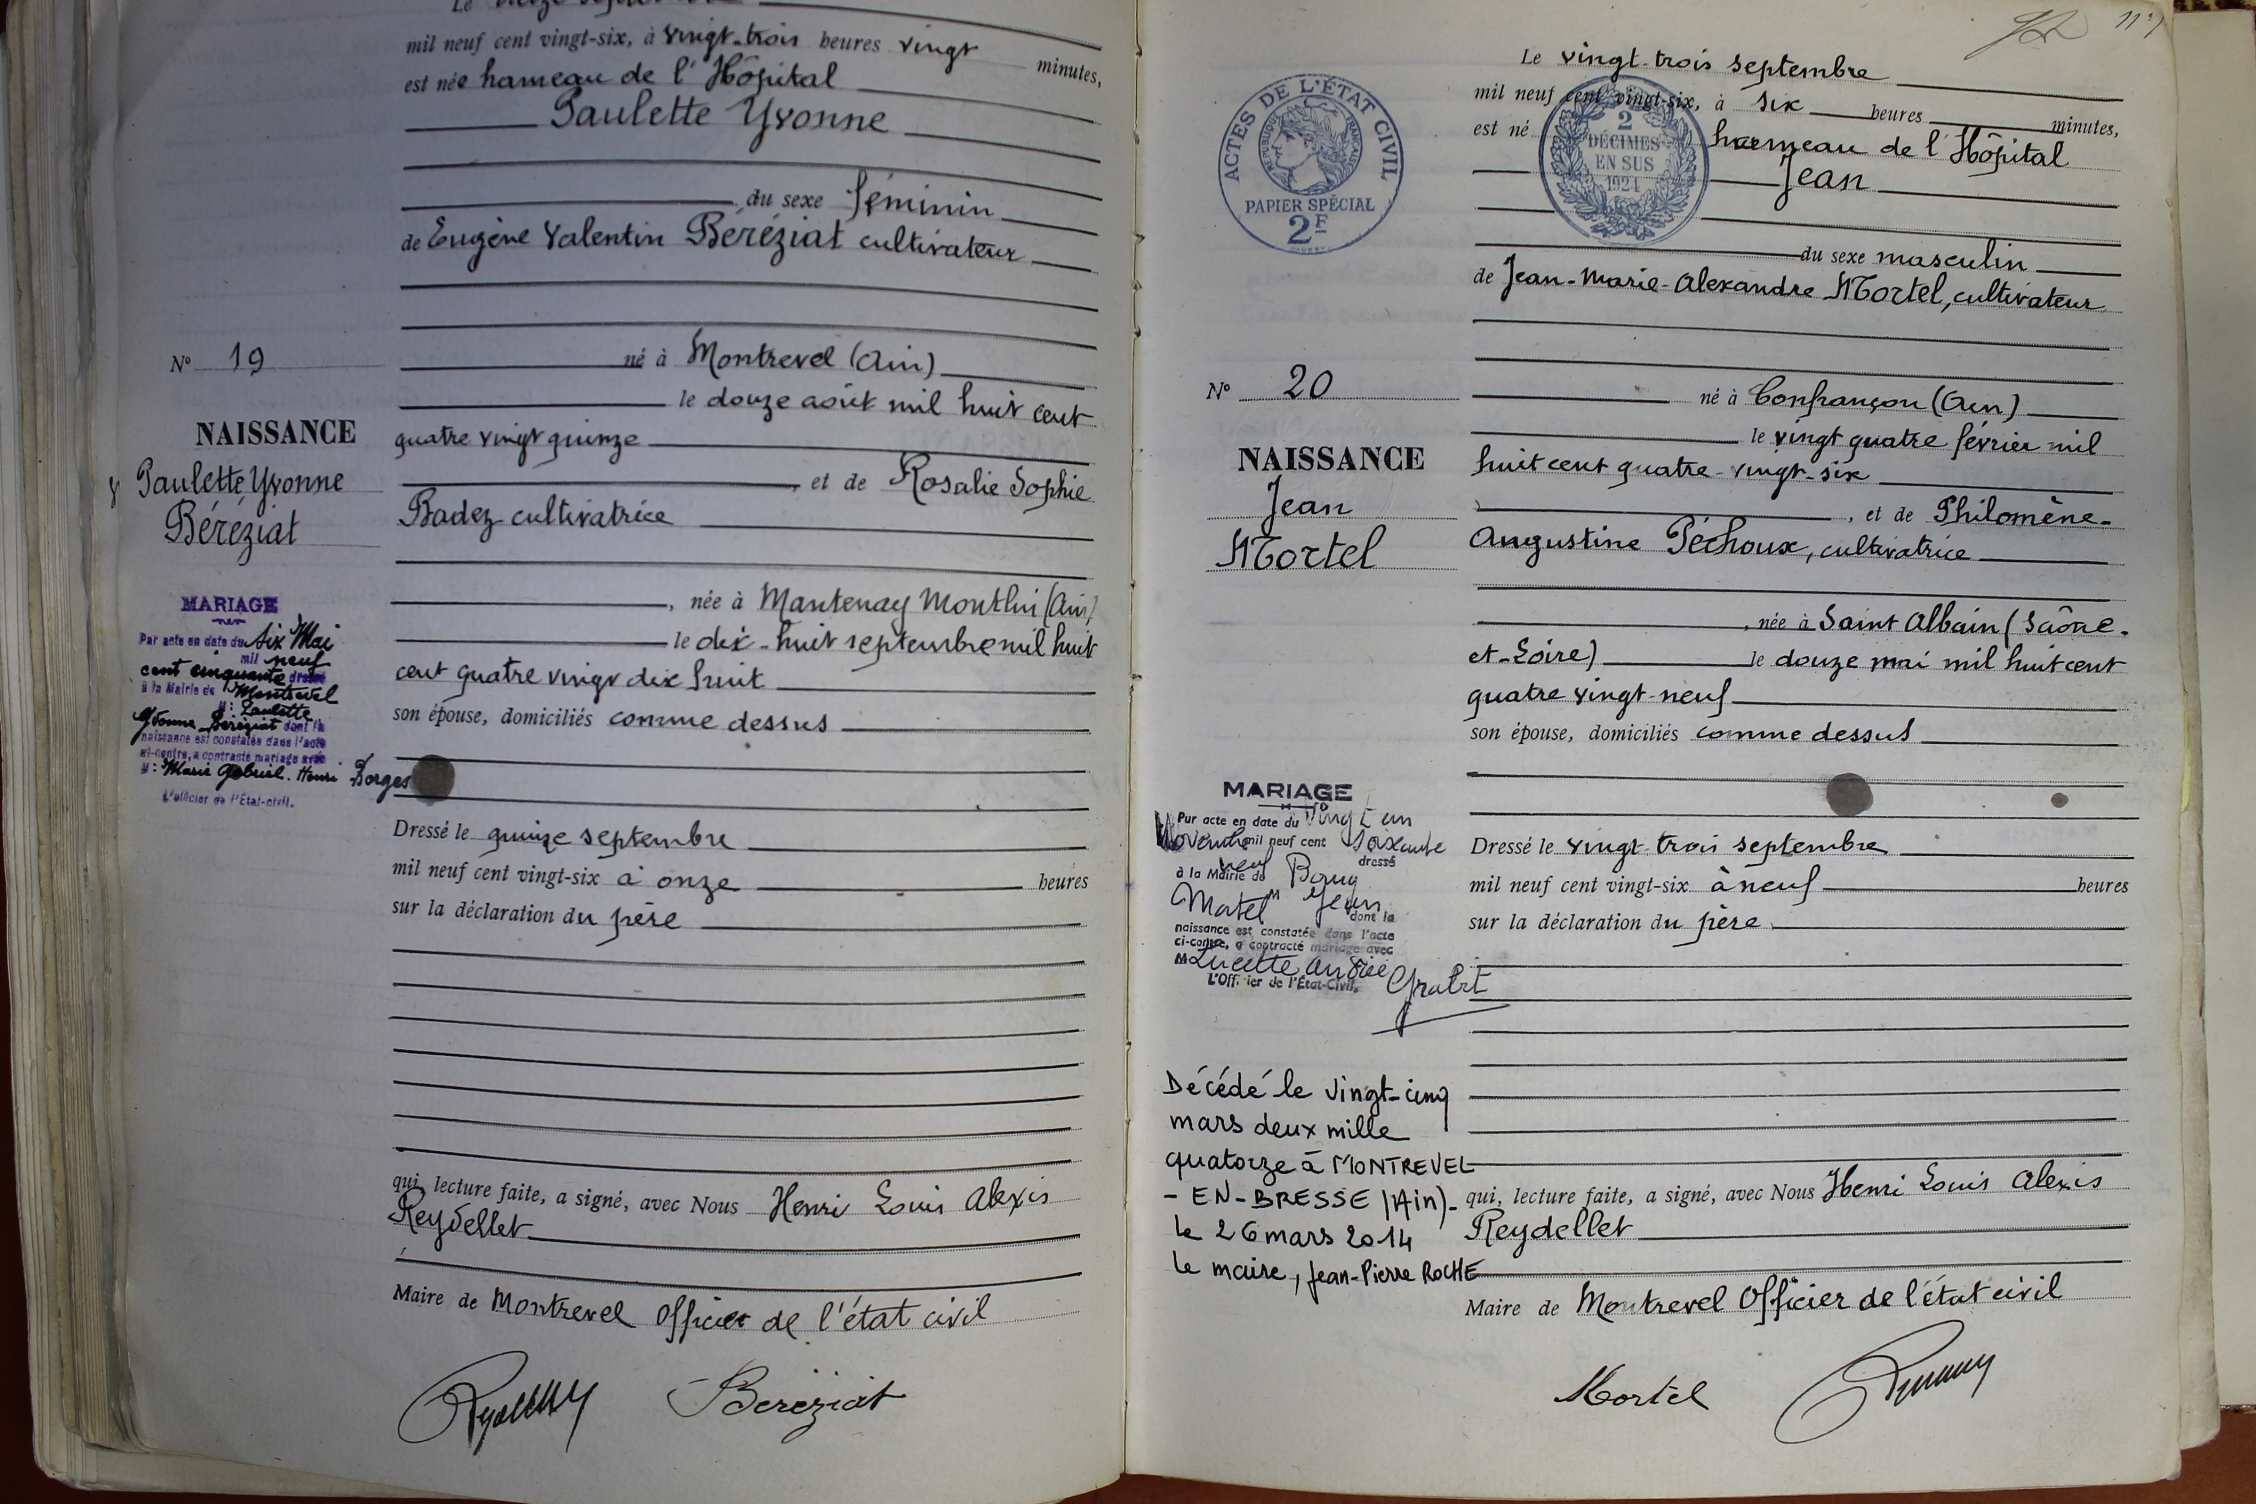 Le
mil neuf cent vingt-six, à vingt-trois heures vingt minutes,
est née hameau de l'Hôpital
Paulette Yvonne
du sexe féminin
de Eugène Valentin Béréziat cultivateur
né à Montrevel (Ain)
le douze août mil huit cent
quatre vingt quinze
, et de Rosalie Sophie
Badez cultivatrice
, née à Mantenay Montlin (Ain)
le dix-huit septembre mil huit
cent quatre vingt dix huit
son épouse, domiciliés comme dessus
Dressé le quinze septembre
mil neuf cent vingt-six à onze heures
sur la déclaration du père
qui, lecture faite, a signé, avec Nous Henri Louis Alexis
Reydellet
Maire de Montrevel Officier de l'état civil
Béréziat
N° 19
NAISSANCE
Paulette Yvonne
Béréziat
MARIAGE
Par acte en date du Six Mai
mil neuf
cent cinquante dressé
à la Mairie de Montrevel
M: Paulette
Yvonne Béréziat dont la
naissance est constatée dans l'acte
ci-contre, a contracté mariage avec
M: Marie Gabriel Henri Borges
L'officier de l'État-civil.
Le vingt-trois septembre
mil neuf cent vingt-six, à six heures minutes,
est né hameau de l'Hôpital
Jean
du sexe masculin
de Jean-Marie-Alexandre Mortel, cultivateur
né à Confrançon (Ain)
le vingt quatre février mil
huit cent quatre-vingt-six
, et de Philomène-
Augustine Péchoux, cultivatrice
, née à Saint Albain (Saône-
et-Loire) le douze mai mil huit cent
quatre vingt-neuf
son épouse, domiciliés comme dessus
Dressé le vingt-trois septembre
mil neuf cent vingt-six à neuf heures
sur la déclaration du père
qui, lecture faite, a signé, avec Nous Henri Louis Alexis
Reydellet
Maire de Montrevel Officier de l'état civil
Mortel
ACTES DE L'ÉTAT CIVIL
RÉPUBLIQUE FRANÇAISE
PAPIER SPÉCIAL
2F
2
DÉCIMES
EN SUS
1924
N° 20
NAISSANCE
Jean
Mortel
MARIAGE
Par acte en date du Vingt un
Novembre mil neuf cent soixante
neuf dressé
à la Mairie de Bourg
Matel M Jean
dont la
naissance est constatée dans l'acte
ci-contre, a contracté mariage avec
M Lucette Andrée
L'Officier de l'État-Civil,
Décédé le vingt-cinq
mars deux mille
quatorze à MONTREVEL
-EN-BRESSE (Ain)-
le 26 mars 2014
le maire, Jean-Pierre ROCHE